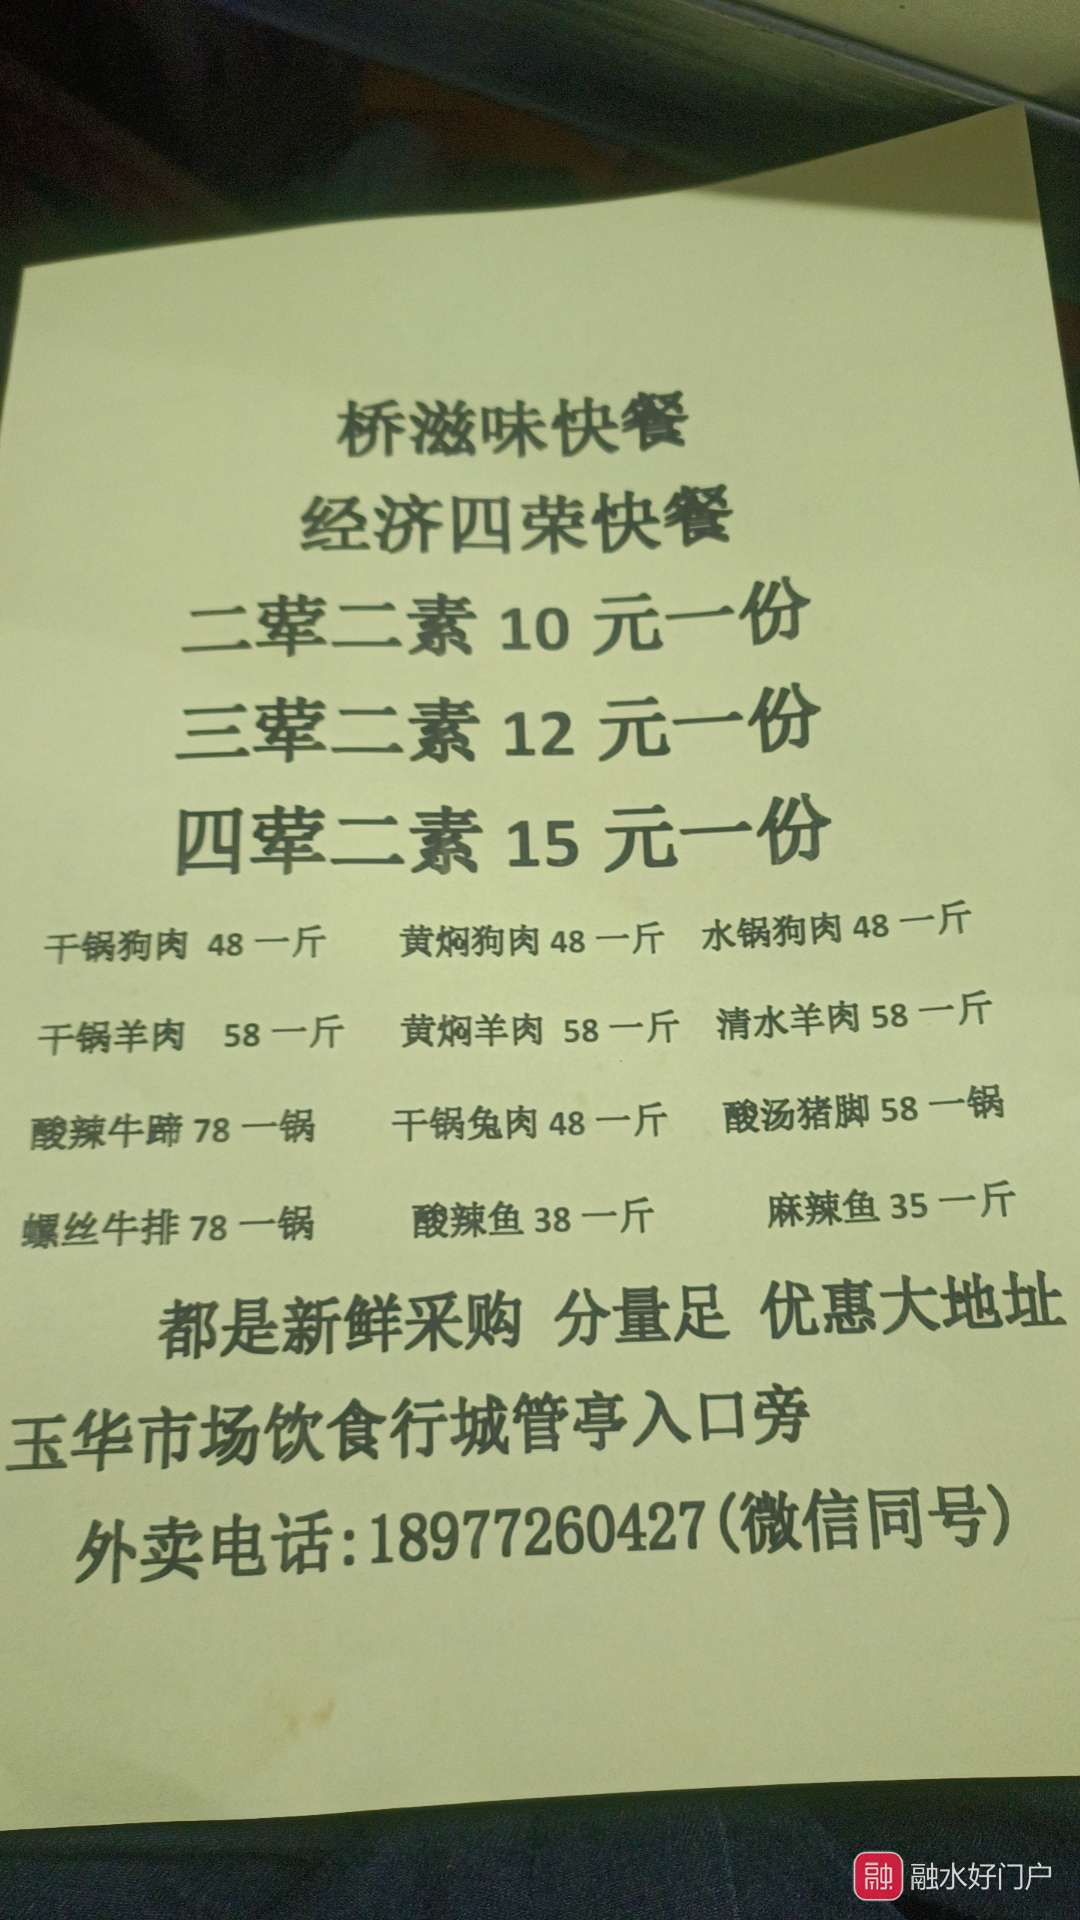 桥滋味快餐
经济四荣快餐
二荤二素 10 元一份
三荤二素 12 元一份
四荤二素 15 元一份
干锅狗肉 48 一斤 黄焖狗肉 48 一斤 水锅狗肉 48 一斤
干锅羊肉 58 一斤 黄焖羊肉 58 一斤 清水羊肉 58 一斤
酸辣牛蹄 78 一锅 干锅兔肉 48 一斤 酸汤猪脚 58 一锅
螺丝牛排 78 一锅 酸辣鱼 38 一斤 麻辣鱼 35 一斤
都是新鲜采购 分量足 优惠大地址
玉华市场饮食行城管亭入口旁
外卖电话:18977260427(微信同号)
融 融水好门户